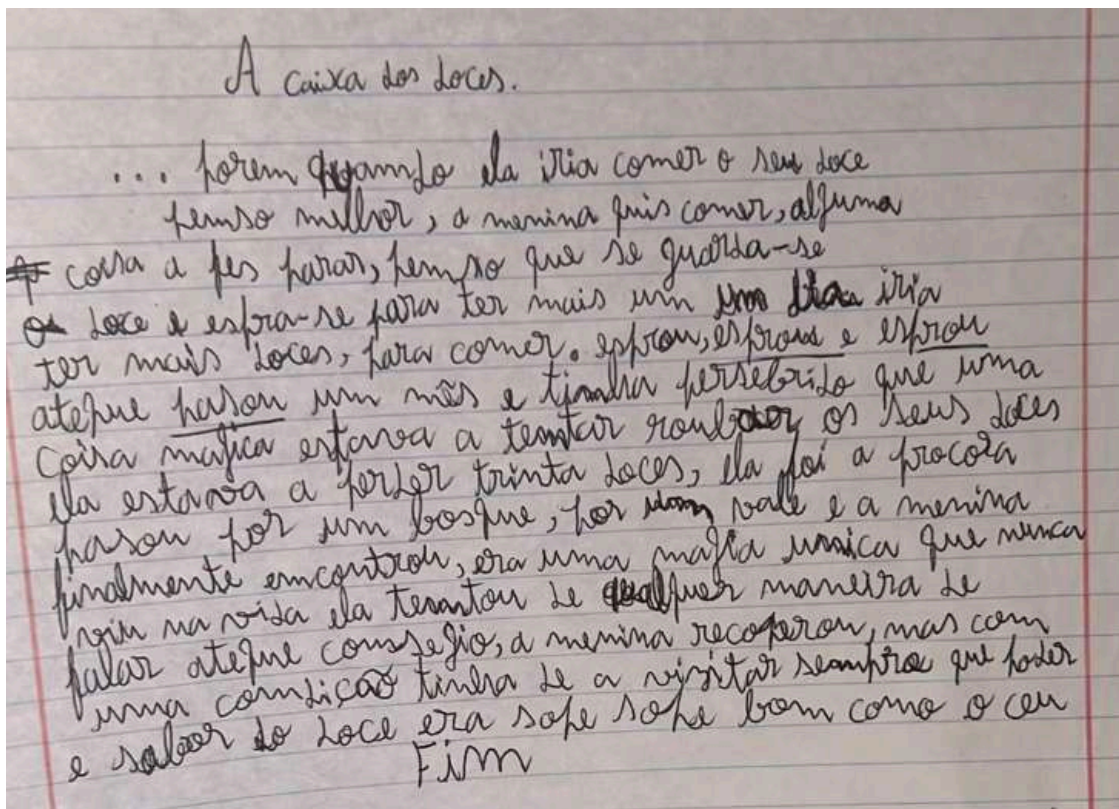 A caixa dos doces.
... porem quando ela iria comer o seu doce
pemso milhor, a menina quis comer, alguma
coisa a fes parar, pemso que se guarda-se
o doce e espra-se para ter mais um iria
ter mais doces, para comer. esprou, esprou e esprou
ateque pasou um mês e tinha persebido que uma
coisa magica estava a tentar roubar os seus doces
ela estava a perder trinta doces, ela foi a procora
pasou por um bosque, por um vale e a menina
finalmente emcontrou, era uma magia unica que nunca
viu na vida ela temtou de qualquer maneira de
falar ateque comsegio, a menina recoperou, mas com
uma comdição tinha de a visitar sempre que poder
e sabor do doce era sope sope bom como o ceu
Fim